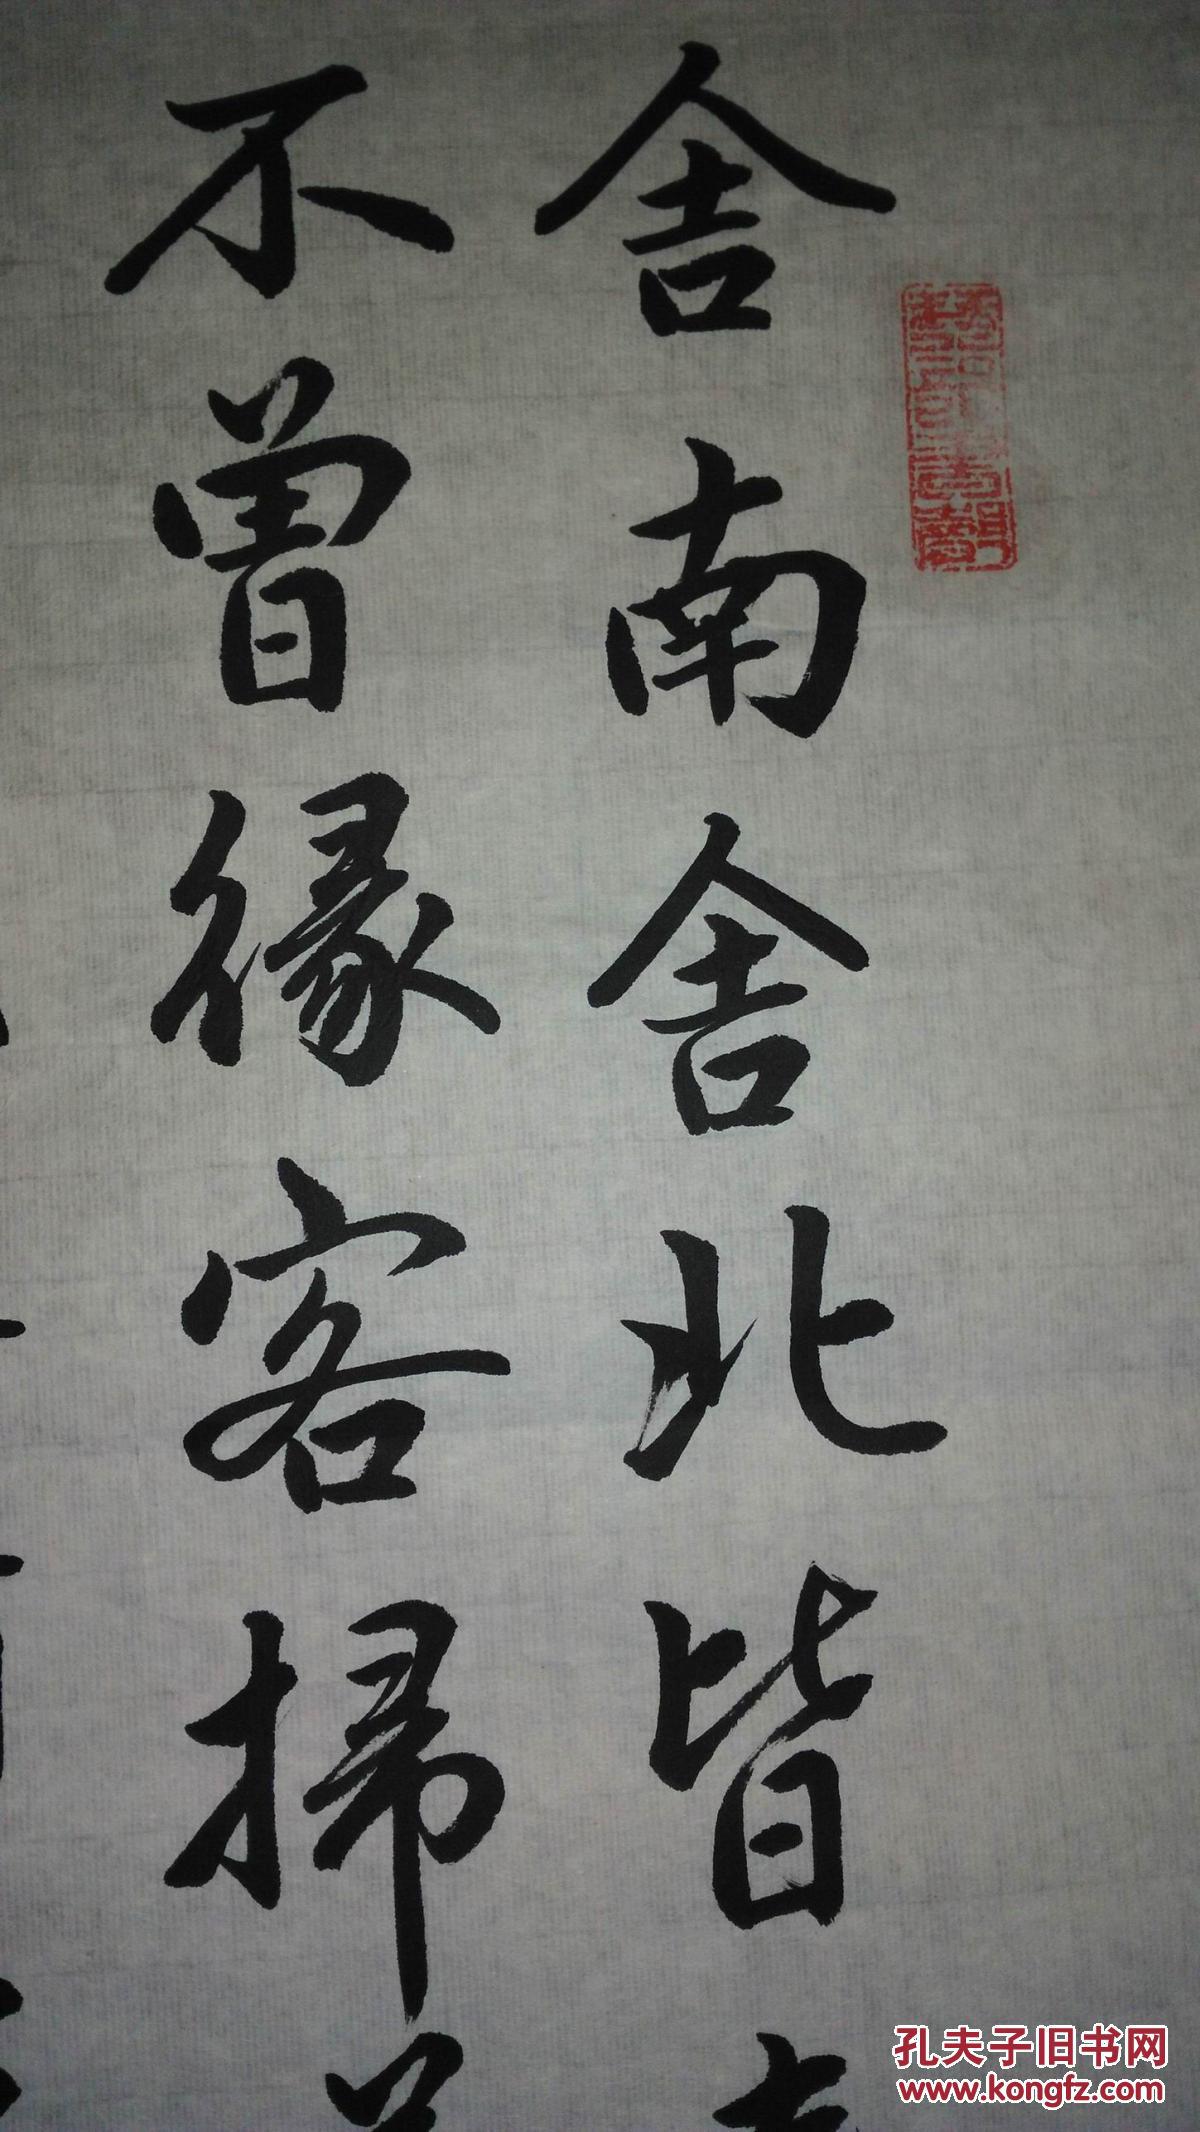 舍南舍北皆
不曾緣客掃
孔夫子旧书网
www.kongfz.com